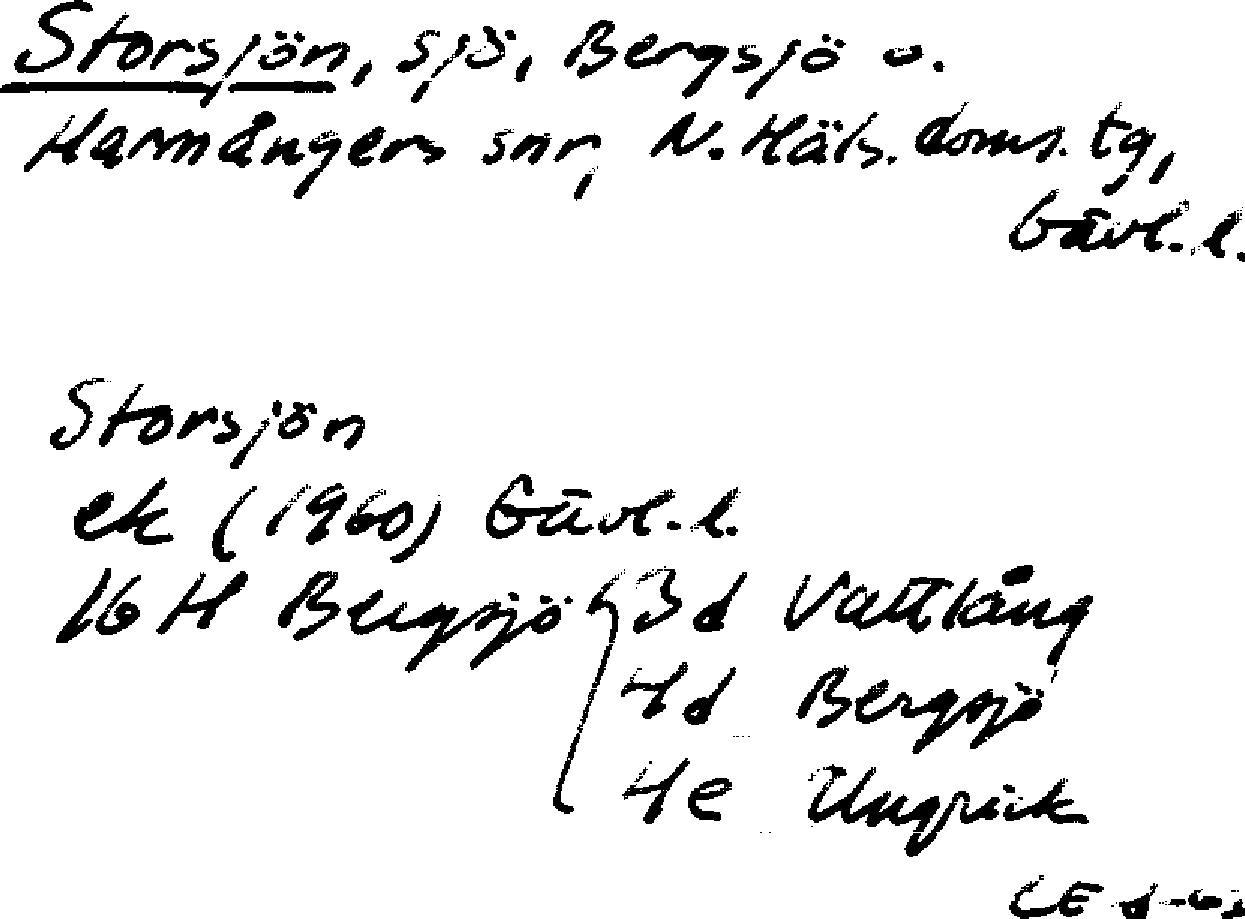 Storsjön, sjö, Bergsjö o.
Harmångers snr, N. Häls. doms. tg,
Gävl. l.
Storsjön
ek (1960) Gävl. l.
16 H Bergsjö 3d Vattlång
4d Bergsjö
4e Ungsick
CE